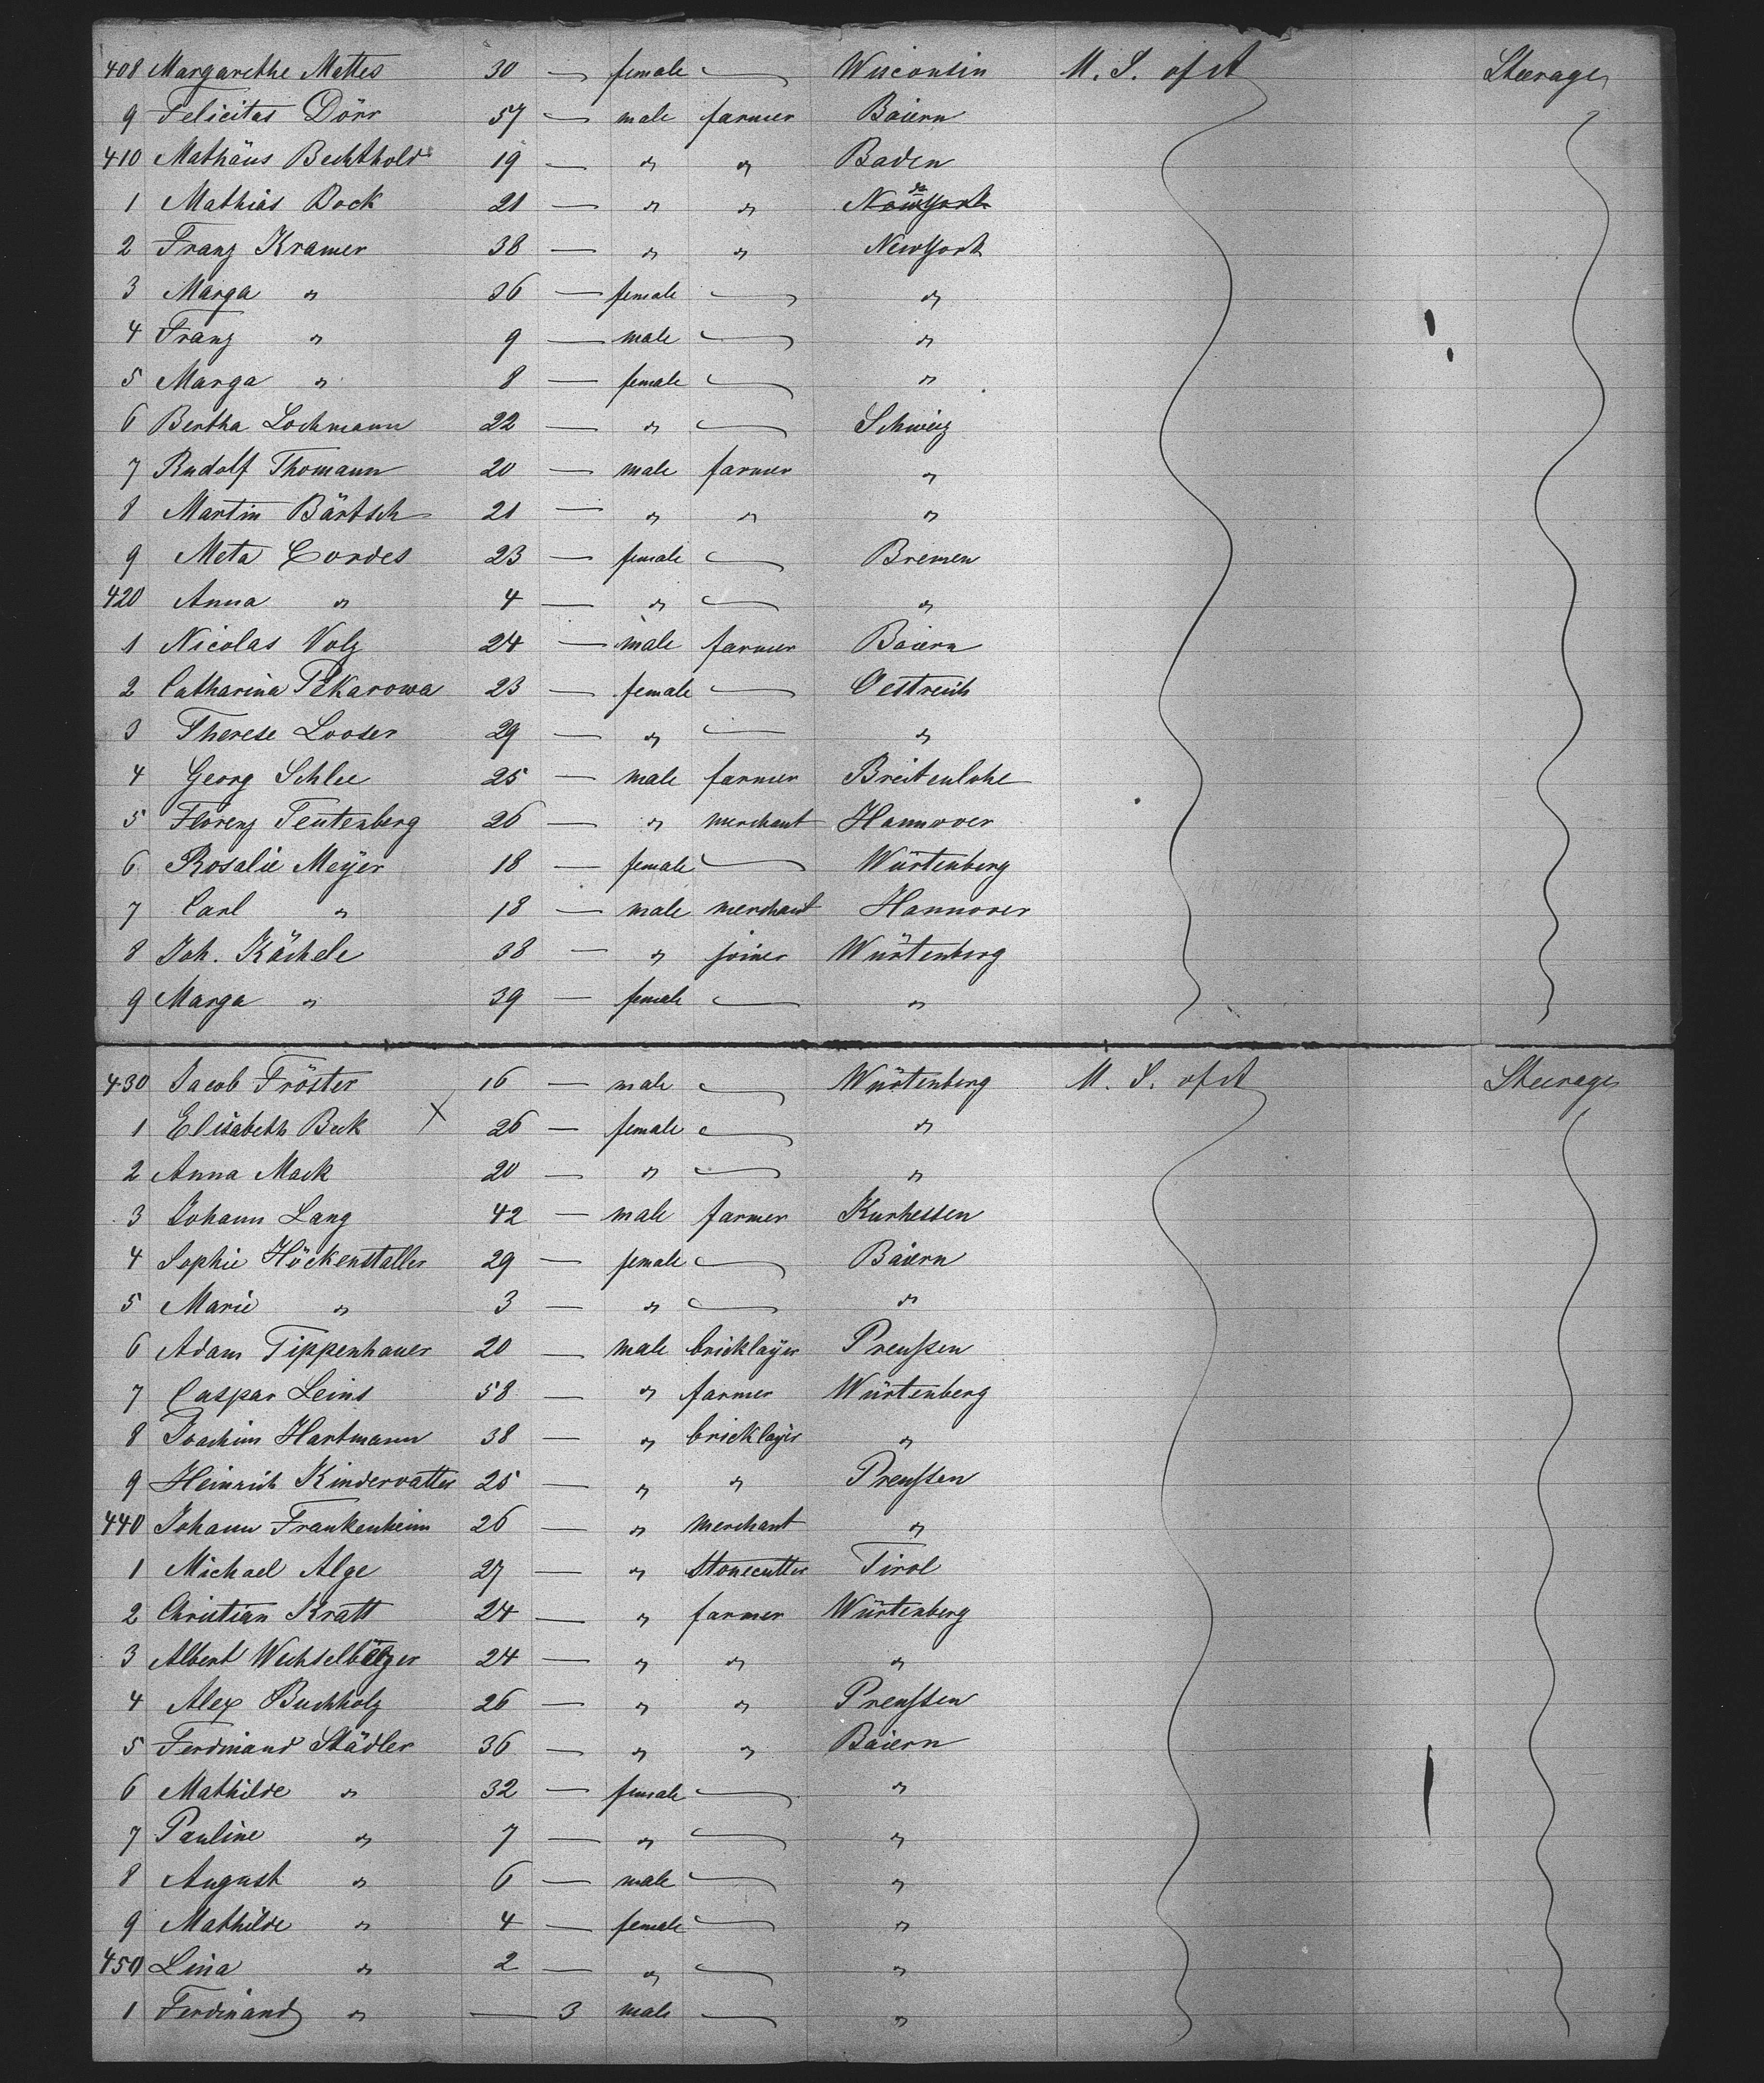 408 Margarethe Mattes 30 — female — Wisconsin U. S. of A Steerage
9 Felicitas Dörr 57 — male farmer Baiern
410 Mathäus Bechthold 19 — " " Baden
1 Mathias Bock 21 — " " NewYork do
2 Franz Kramer 38 — " " NewYork
3 Marga " 36 — female — "
4 Franz " 9 — male — "
5 Marga " 8 — female — "
6 Bertha Lochmann 22 — " — Schweiz
7 Rudolf Thomann 20 — male farmer "
8 Martin Bärtsch 21 — " " "
9 Meta Cordes 23 — female — Bremen
420 Anna " 4 — " — "
1 Nicolas Volz 24 — male farmer Baiern
2 Catharina Pekarowa 23 — female — Oestreich
3 Therese Looser 29 — " — "
4 Georg Schlee 25 — male farmer Breitenlohe
5 Florenz Teutenberg 26 — " merchant Hannover
6 Rosalie Meÿer 18 — female — Würtenberg
7 Carl " 18 — male merchant Hannover
8 Joh. Kächele 38 — " joiner Würtenberg
9 Marga " 39 — female — "
430 Jacob Fröster 16 — male — Würtenberg U. S. of A Steerage
1 Elisabeth Beck X 26 — female — "
2 Anna Mack 20 — " — "
3 Johann Lang 42 — male farmer Kurhessen
4 Sophie Höckenstaller 29 — female — Baiern
5 Marie " 3 — " — "
6 Adam Tippenhauer 20 — male bricklayer Preußen
7 Caspar Leins 58 — " farmer Würtenberg
8 Joachim Hartmann 38 — " bricklayer "
9 Heinrich Kindervatter 25 — " " Preußen
440 Johann Frankenheim 26 — " merchant "
1 Michael Alge 27 — " Stonecutter Tirol
2 Christian Kratt 24 — " farmer Würtenberg
3 Albert 24 — " " "
4 Alex Buchholz 26 — " " Preußen
5 Ferdinand Städler 36 — " " Baiern
6 Mathilde " 32 — female — "
7 Pauline " 7 — " — "
8 August " 6 — male — "
9 Mathilde " 4 — female — "
450 Lina " 2 — " — "
1 Ferdinand " — 3 male — "